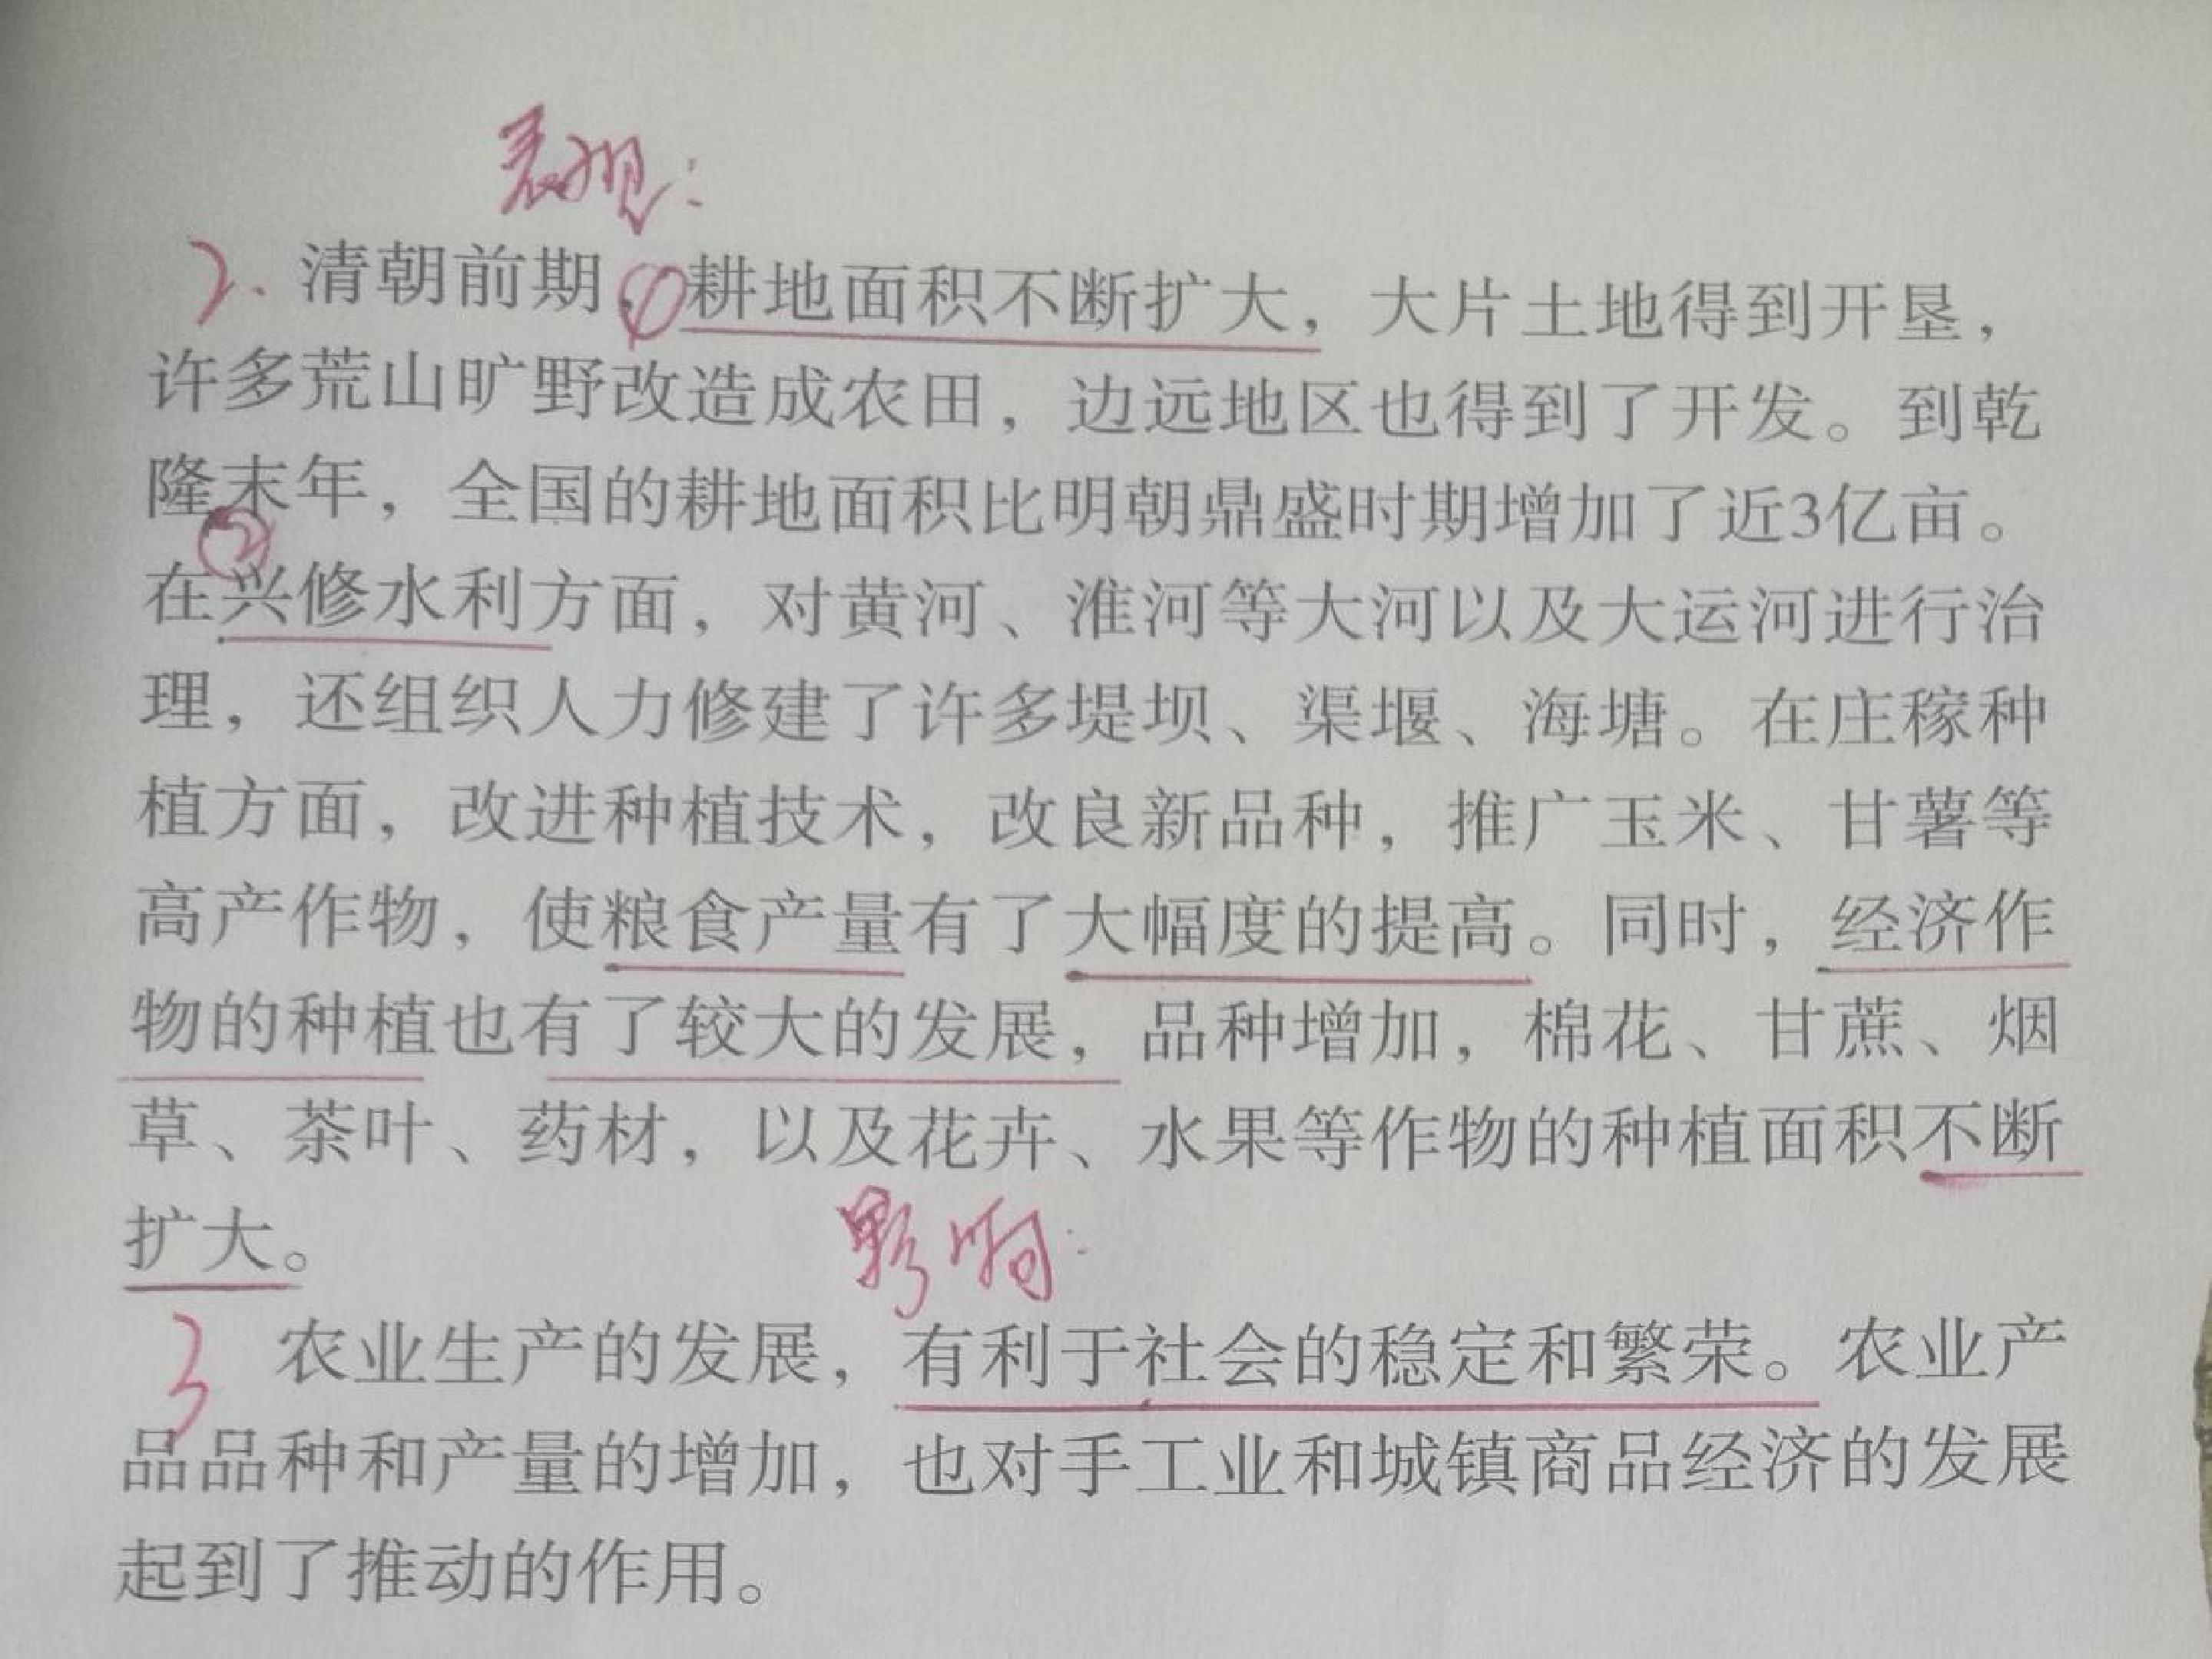 表现：
2. 清朝前期，①耕地面积不断扩大，大片土地得到开垦，
许多荒山旷野改造成农田，边远地区也得到了开发。到乾
隆末年，全国的耕地面积比明朝鼎盛时期增加了近3亿亩。
②
在兴修水利方面，对黄河、淮河等大河以及大运河进行治
理，还组织人力修建了许多堤坝、渠堰、海塘。在庄稼种
植方面，改进种植技术，改良新品种，推广玉米、甘薯等
高产作物，使粮食产量有了大幅度的提高。同时，经济作
物的种植也有了较大的发展，品种增加，棉花、甘蔗、烟
草、茶叶、药材，以及花卉、水果等作物的种植面积不断
扩大。
影响：
3 农业生产的发展，有利于社会的稳定和繁荣。农业产
品品种和产量的增加，也对手工业和城镇商品经济的发展
起到了推动的作用。